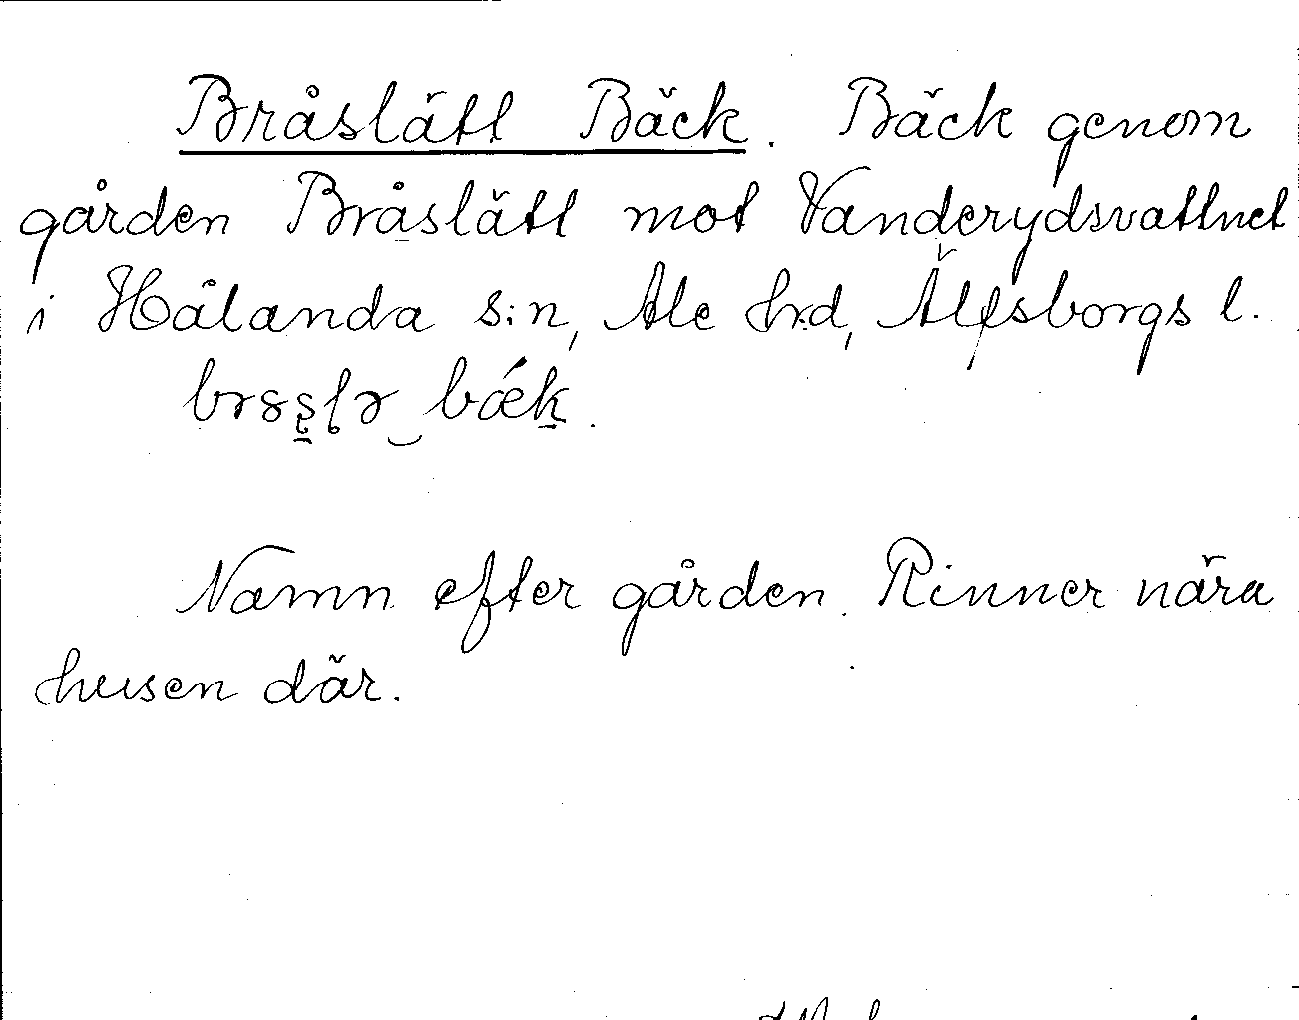 Bråslätt Bäck. Bäck genom
gården Bråslätt mot Vanderydsvattnet
i Hålanda s:n, Ale hrd, Älfsborgs l.
Namn efter gården. Rinner nära
husen där.